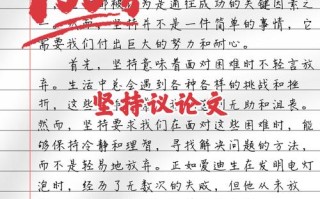 为是通往成功的关键因素之
然而，坚持并不是一件简单的事情，它
需要我们付出巨大的努力和耐心。
首先，坚持意味着面对困难时不轻言放
弃。生活中总会遇到各种各样的挑战和挫
折，这些 无助和沮丧。
坚持议论文
然而，坚持要求我们在面对这些困难时，能
够保持冷静和理智，寻找解决问题的方法，
而不是轻易地放弃。正如爱迪生在发明电灯
泡时，经历了无数次的失败，但他从未放